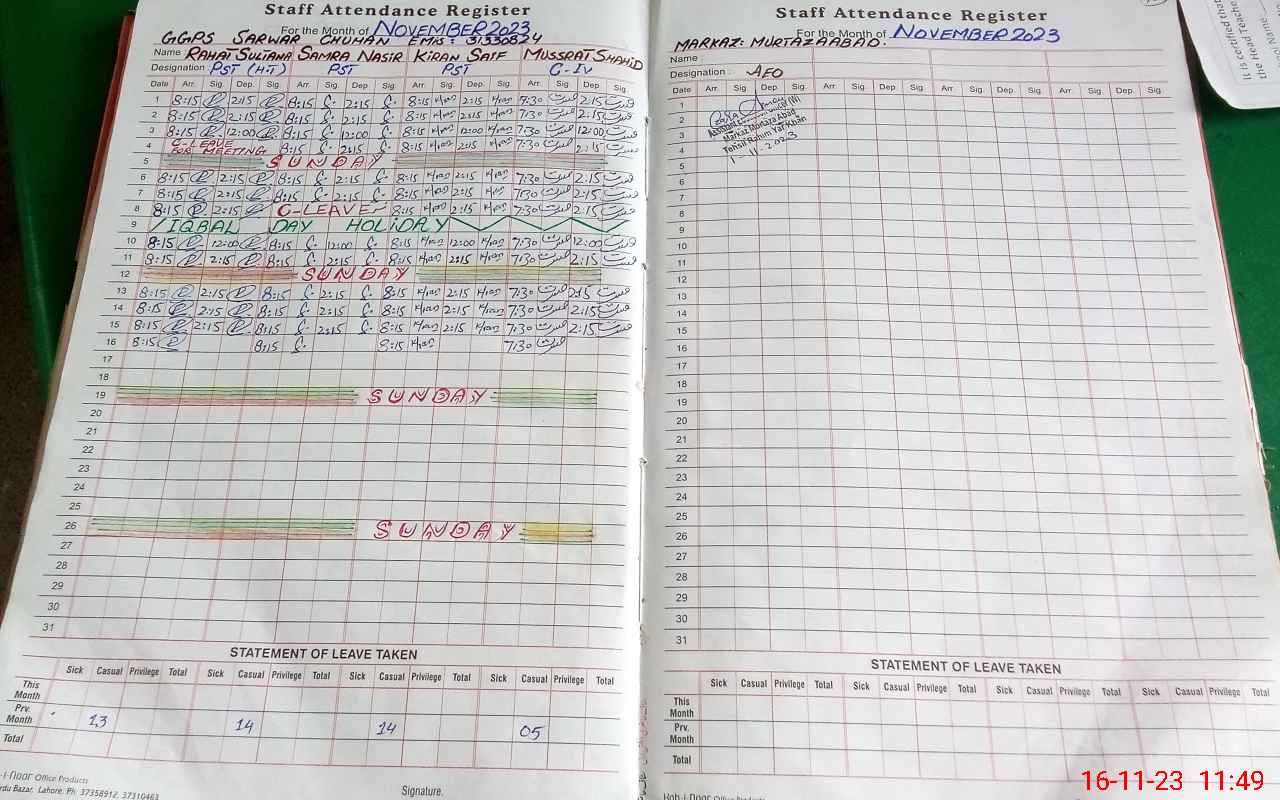 Staff Attendance Register
For the Month of NOVEMBER 2023
GGPS SARWAR CHUHAN EMIS: 31330824
Name RAHAT SULTANA SAMRA NASIR KIRAN SAIF MUSSRAT SHAHID
Designation PST (H.T) PST PST C-IV
Date Arr. Sig. Dep. Sig. Arr. Sig. Dep. Sig. Arr. Sig. Dep. Sig. Arr. Sig. Dep Sig.
1 8:15 2:15 8:15 2:15 8:15 2:15 7:30 2:15
2 8:15 2:15 8:15 2:15 8:15 2:15 7:30 2:15
3 8:15 12:00 8:15 12:00 8:15 12:00 7:30 12:00
4 C-LEAVE FOR MEETING 8:15 2:15 8:15 2:15 7:30 2:15
5 SUNDAY
6 8:15 2:15 8:15 2:15 8:15 2:15 7:30 2:15
7 8:15 2:15 8:15 2:15 8:15 2:15 7:30 2:15
8 8:15 2:15 C-LEAVE 8:15 2:15 7:30 2:15
9 IQBAL DAY HOLIDAY
10 8:15 12:00 8:15 12:00 8:15 12:00 7:30 12:00
11 8:15 2:15 8:15 2:15 8:15 2:15 7:30 2:15
12 SUNDAY
13 8:15 2:15 8:15 2:15 8:15 2:15 7:30 2:15
14 8:15 2:15 8:15 2:15 8:15 2:15 7:30 2:15
15 8:15 2:15 8:15 2:15 8:15 2:15 7:30 2:15
16 8:15 8:15 8:15 7:30
17
18
19 SUNDAY
20
21
22
23
24
25
26 SUNDAY
27
28
29
30
31
STATEMENT OF LEAVE TAKEN
Sick Casual Privilege Total Sick Casual Privilege Total Sick Casual Privilege Total Sick Casual Privilege Total
This Month
Prv. Month 13 14 14 05
Total
Office Products
Bazar, Lahore. Ph: 37358912, 37310463
Signature.
Staff Attendance Register
For the Month of NOVEMBER 2023
MARKAZ: MURTAZAABAD.
Name :
Designation : AEO
Date Arr. Sig. Dep. Sig. Arr. Sig. Dep. Sig. Arr. Sig. Dep. Sig. Arr. Sig. Dep. Sig.
1
2
3
4
5
6
7
8
9
10
11
12
13
14
15
16
17
18
19
20
21
22
23
24
25
26
27
28
29
30
31
Markaz Murtaza Abad
Tehsil Rahim Yar Khan
1-11-2023
STATEMENT OF LEAVE TAKEN
Sick Casual Privilege Total Sick Casual Privilege Total Sick Casual Privilege Total Sick Casual Privilege Total
This Month
Prv. Month
Total
Koh-i-Noor Office Products
It is certified that
the Head Teache
16-11-23 11:49